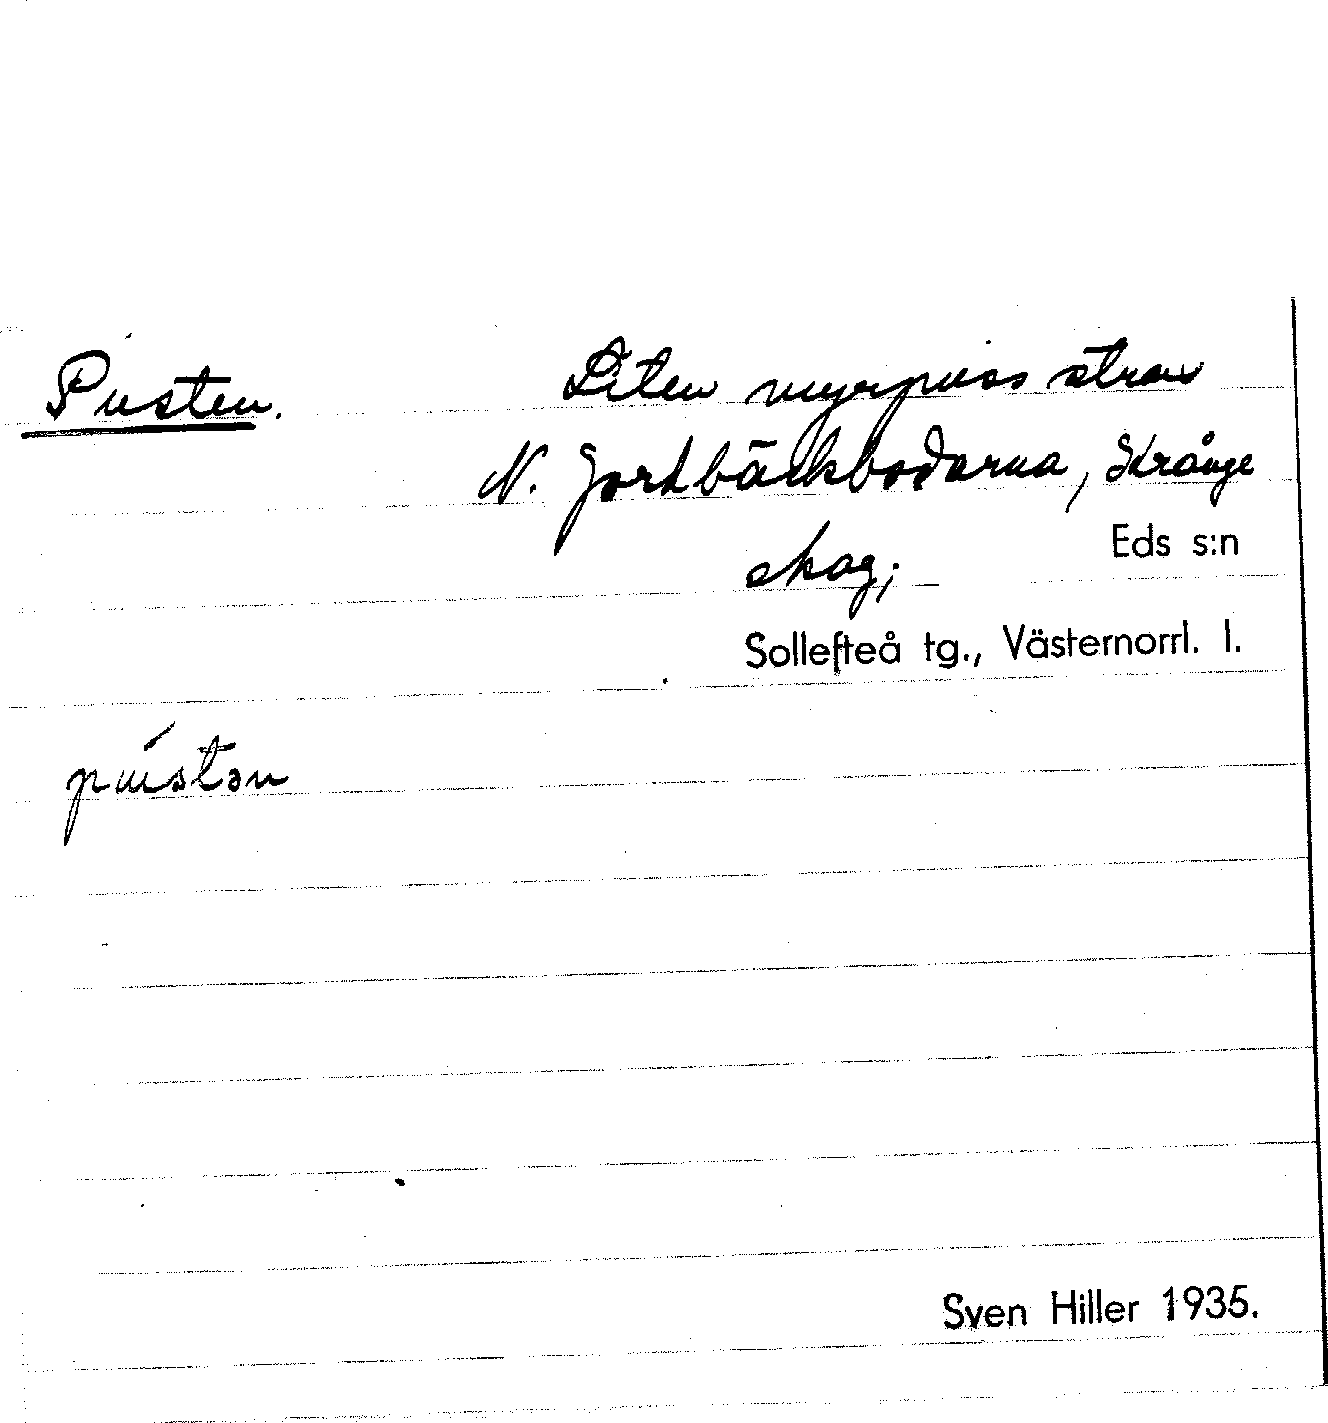 Pusten. Liten myrpuss strax
N. Jortbäcksbodarna, Skrånge
skog;
Eds s:n
Sollefteå tg., Västernorrl. l.
pústən
Sven Hiller 1935.